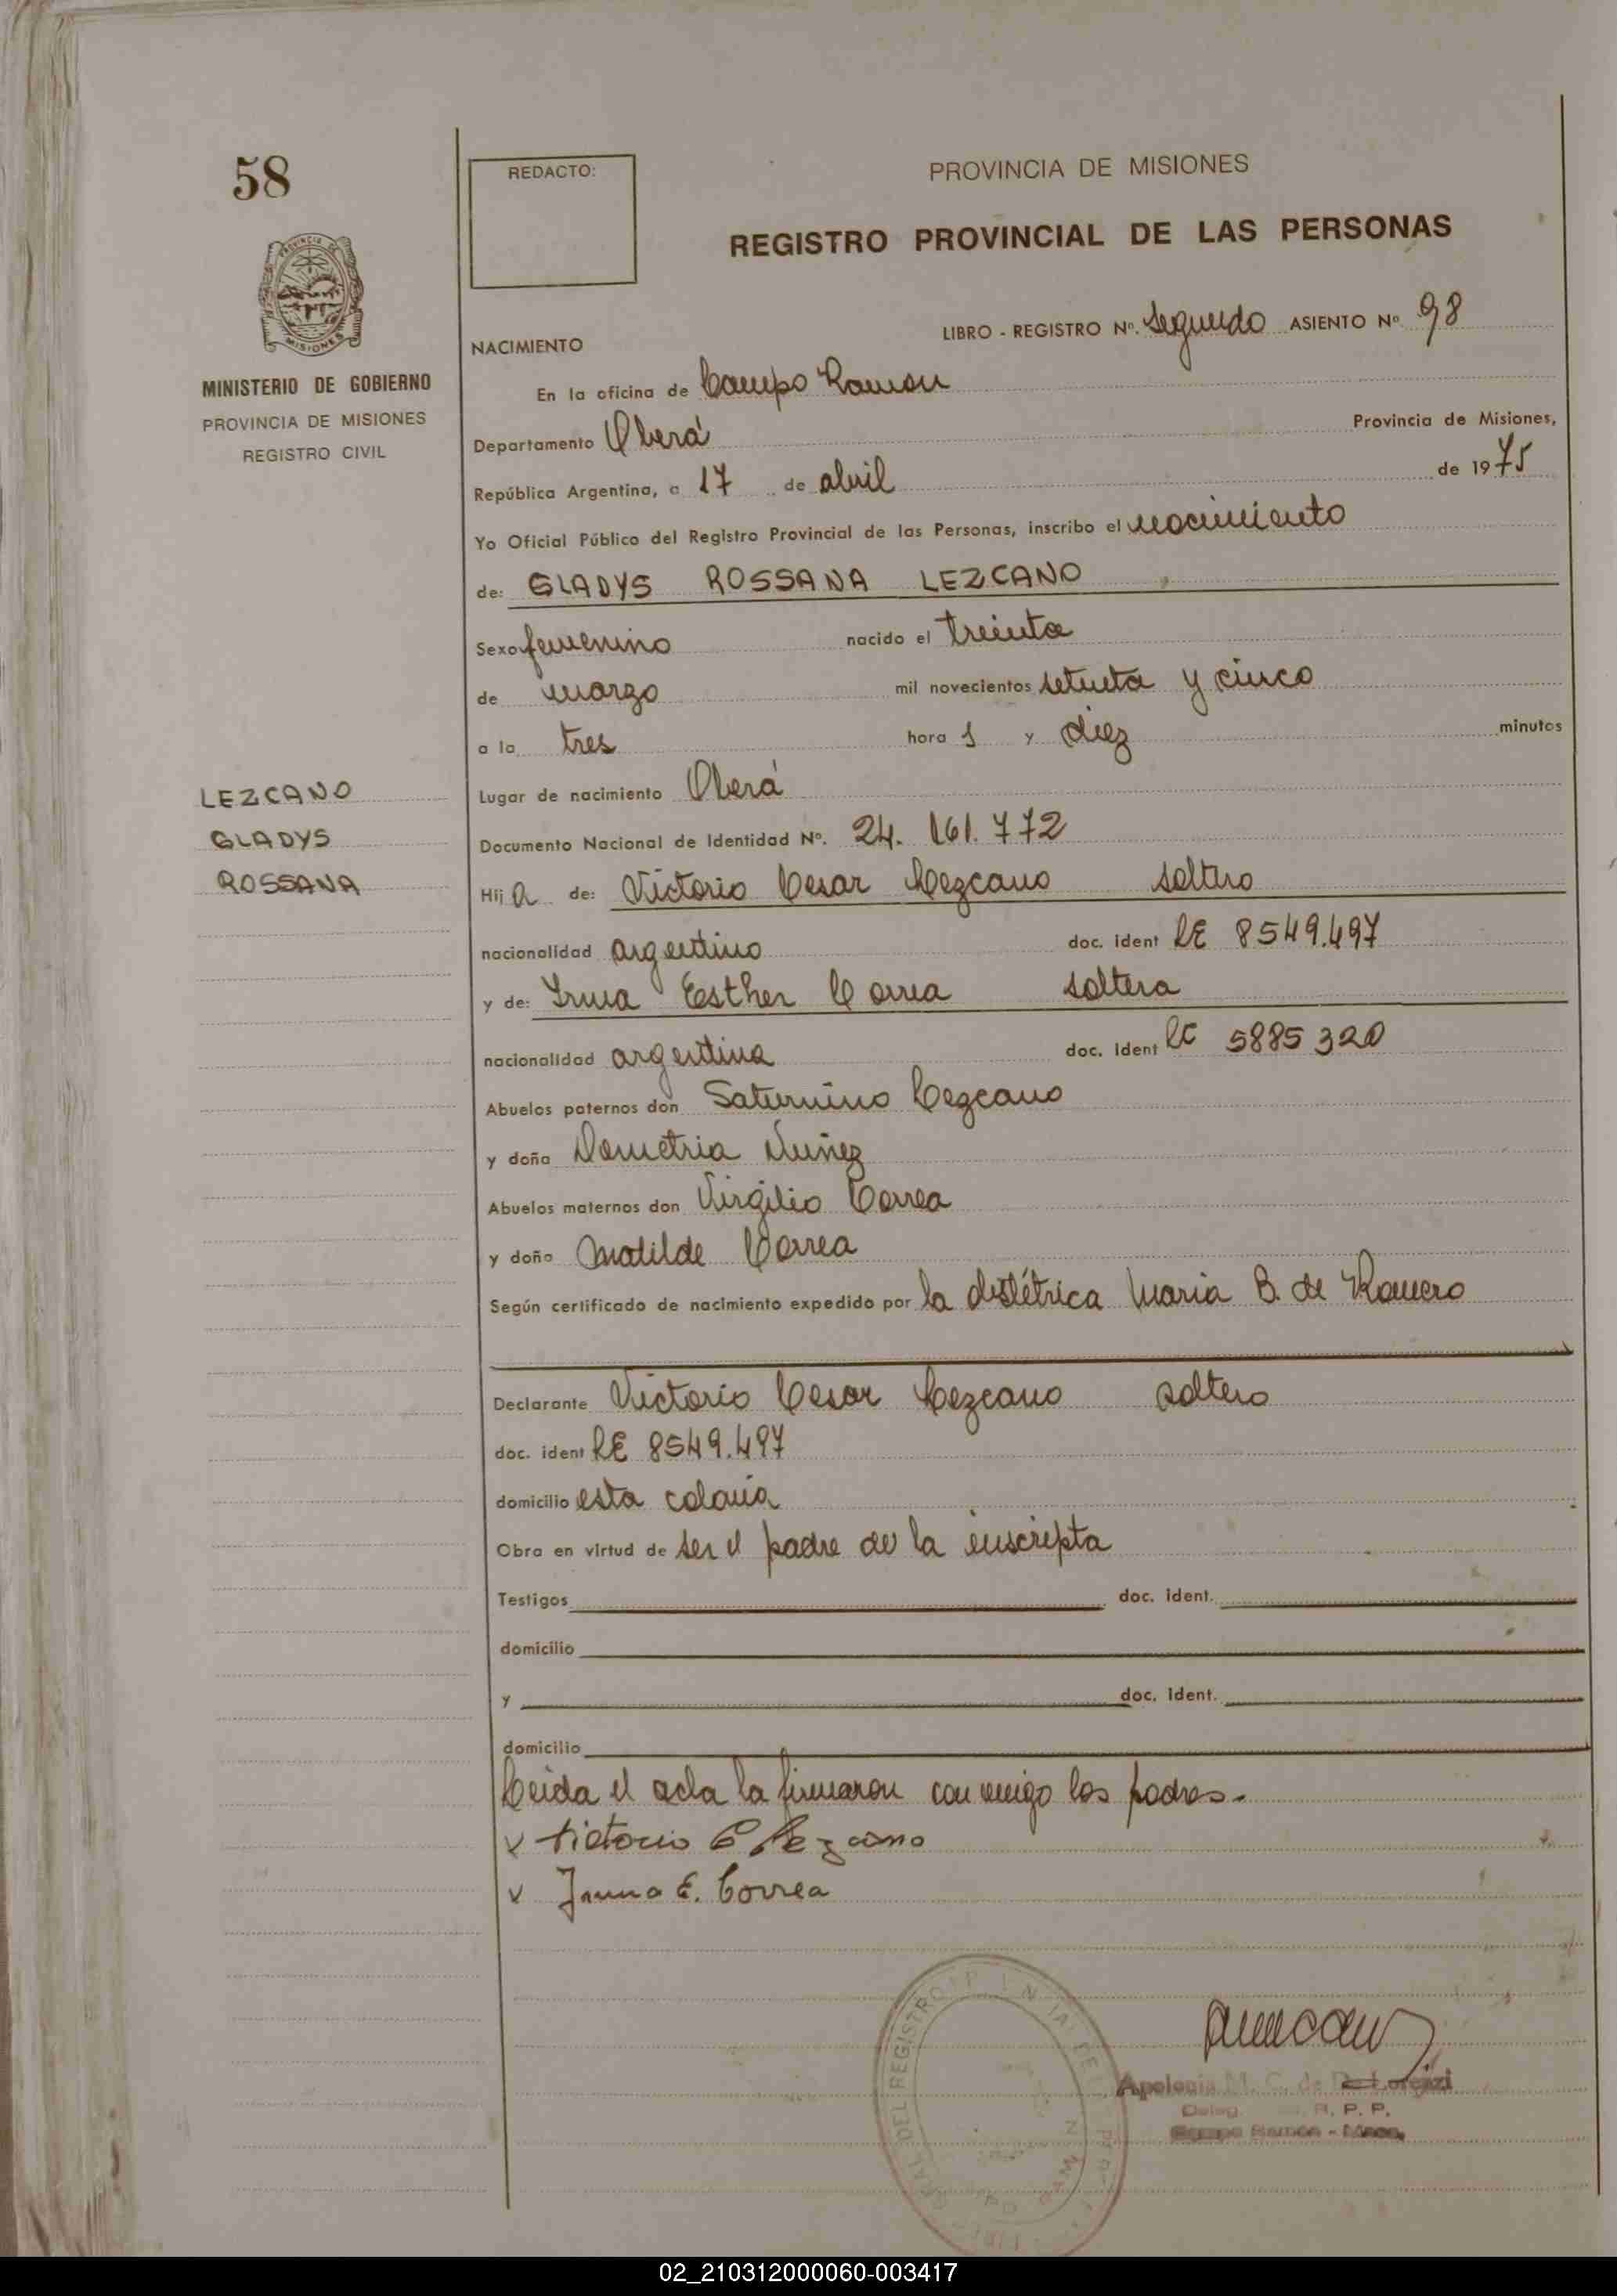 58
REDACTO:
PROVINCIA DE MISIONES
REGISTRO PROVINCIAL DE LAS PERSONAS
PROVINCIA DE
MISIONES
MINISTERIO DE GOBIERNO
PROVINCIA DE MISIONES
REGISTRO CIVIL
LIBRO - REGISTRO Nº. segundo ASIENTO Nº 98
NACIMIENTO
En la oficina de Campo Ramon
Departamento Oberá Provincia de Misiones,
República Argentina, a 17 de abril de 1975
Yo Oficial Público del Registro Provincial de las Personas, inscribo el nacimiento
de: GLADYS ROSSANA LEZCANO
Sexo femenino nacido el treinta
de marzo mil novecientos setenta y cinco
a la tres hora s y diez minutos
LEZCANO
GLADYS
ROSSANA
Lugar de nacimiento Oberá
Documento Nacional de Identidad Nº. 24.161.772
Hij a de: Victorio Cesar Lezcano soltero
nacionalidad argentino doc. ident LE 8549.497
y de: Irma Esther Correa soltera
nacionalidad argentina doc. ident LC 5885320
Abuelos paternos don Saturnino Lezcano
y doña Demetria Nuñez
Abuelos maternos don Virgilio Correa
y doña Matilde Correa
Según certificado de nacimiento expedido por la obstétrica Maria B. de Romero
Declarante Victorio Cesar Lezcano soltero
doc. ident LE 8549.497
domicilio esta colonia
Obra en virtud de ser el padre de la inscripta
Testigos doc. ident.
domicilio
y doc. ident.
domicilio
Leida el acta la firmaron conmigo los padres.-
Victorio C Lezcano
Irma E. Correa
Apolonia M. C. de De Lorenzi
Deleg. R. P. P.
Campo Ramón - Mnes.
02_210312000060-003417